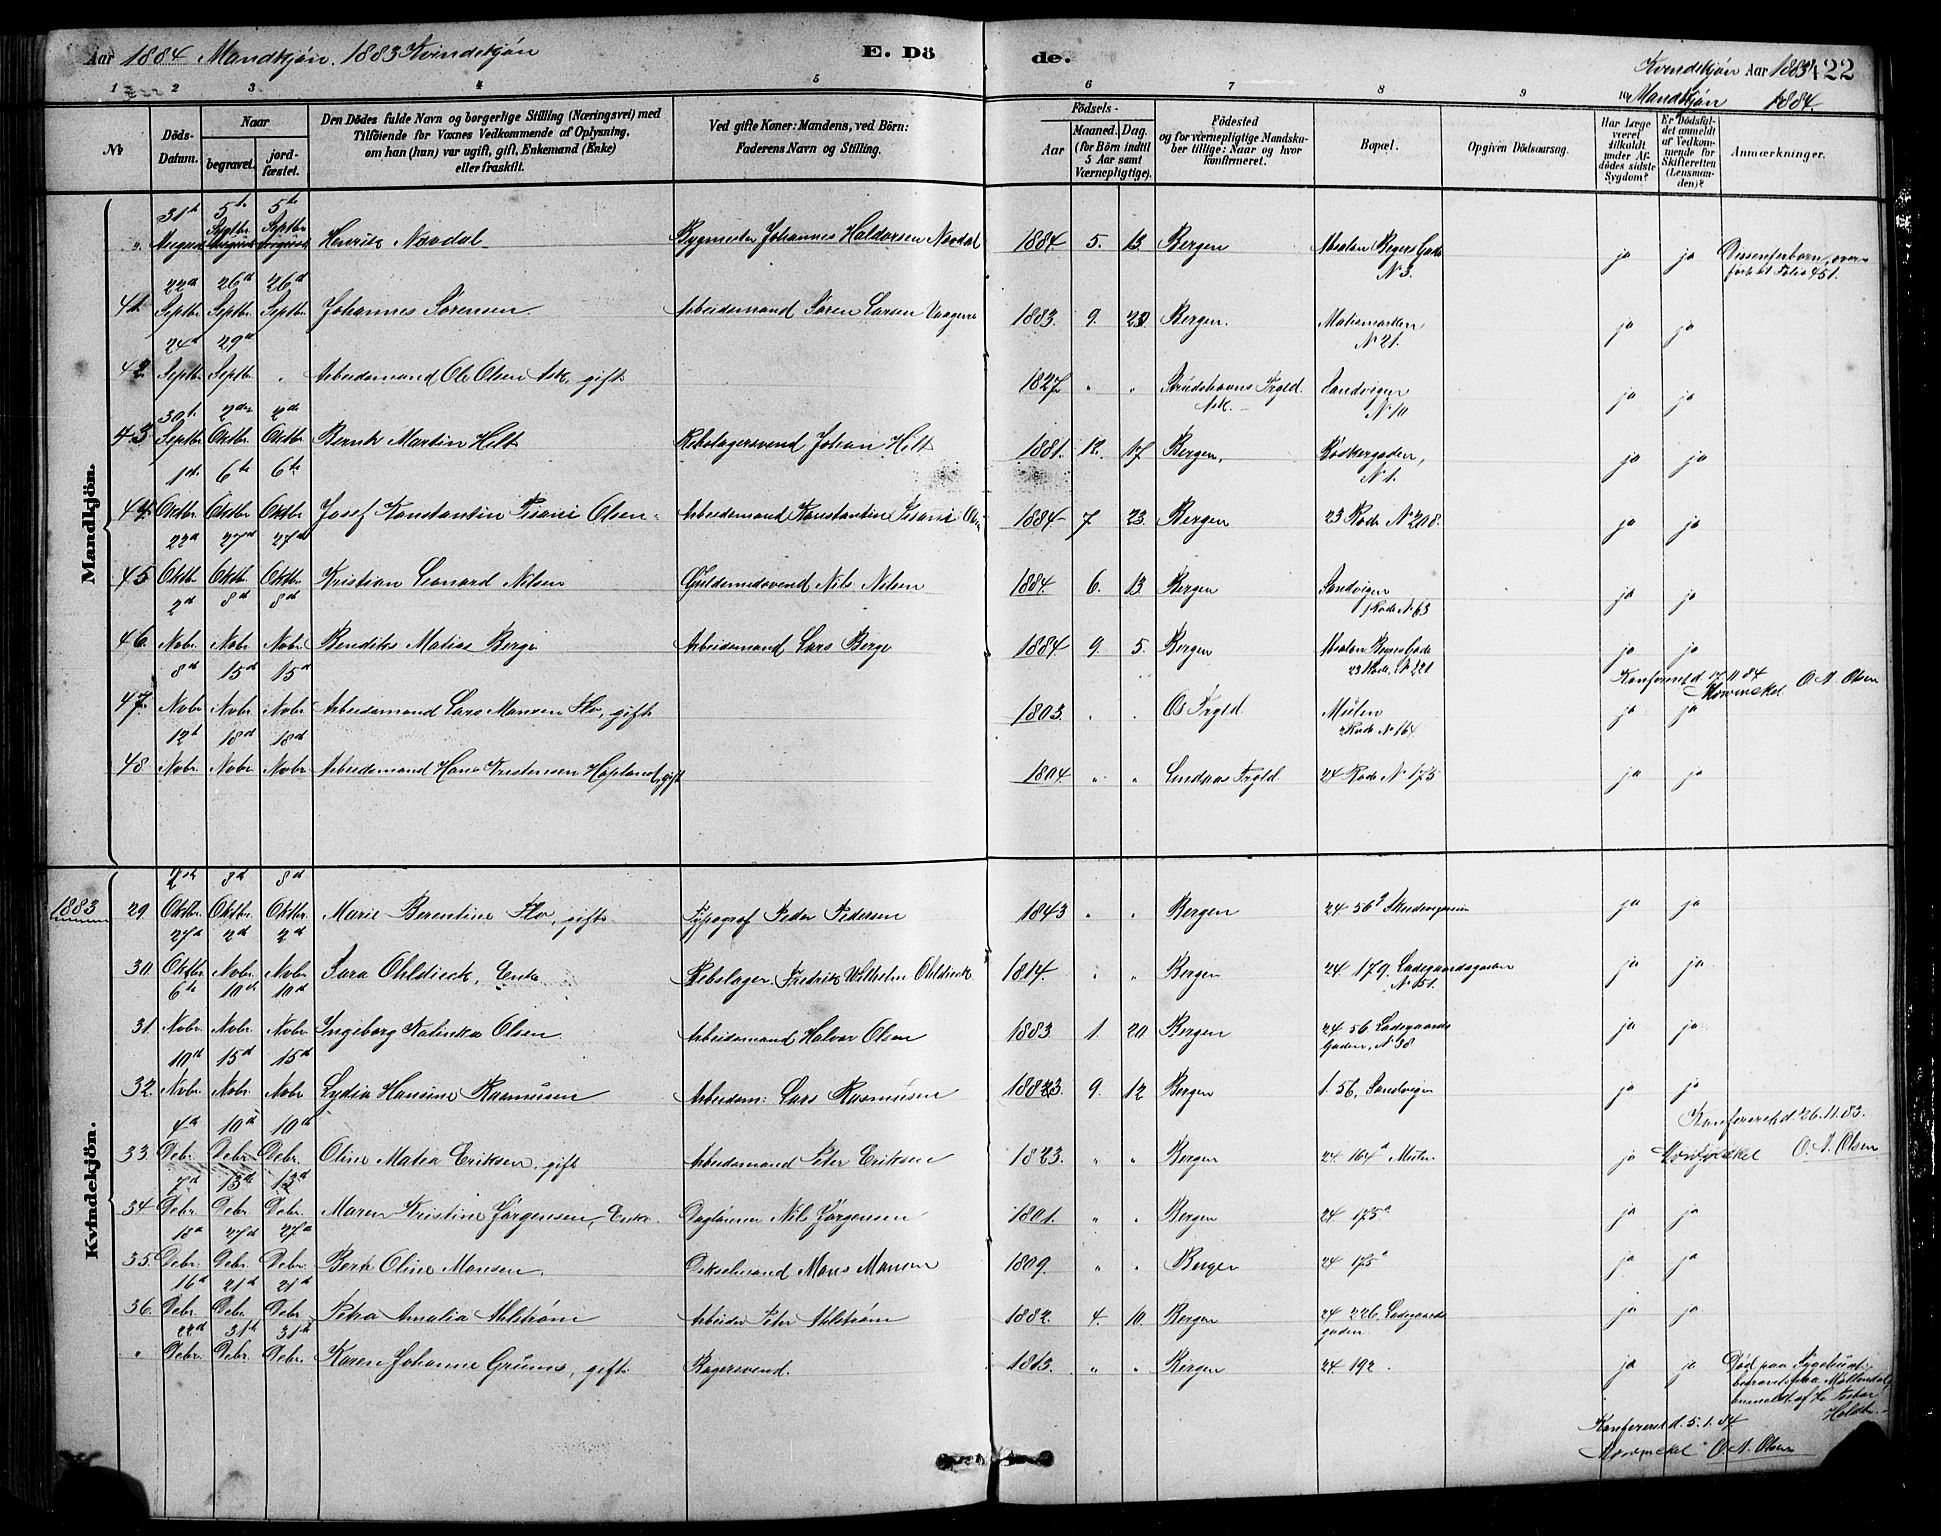 Aar 1884 Mandkjøn. 1883 Kvindekjøn
E. Dö
de.
Kvindekjøn Aar 1883
422
Mandkjøn 1884.
1 2 3 4 5 6 7 8 9 10
№
Döds-
Datum.
Naar
begravet.
jord-
fæstet.
Den Dödes fulde Navn og borgerlige Stilling (Næringsvei) med
Tilföiende for Voxnes Vedkommende af Oplysning,
om han (hun) var ugift, gift, Enkemand (Enke)
eller fraskilt.
Ved gifte Koner: Mandens, ved Börn:
Faderens Navn og Stilling.
Födsels-
Aar
Maaned. Dag.
(for Börn indtil
5 Aar samt
Værnepligtige).
Födested
og for værnepligtige Mandska-
ber tillige: Naar og hvor
konfirmeret.
Bopæl.
Opgiven Dödsaarsag.
Har Læge
været
tilkaldt
under Af-
dödes sidste
Sygdom?
Er Dödsfal-
det anmeldt
af Vedkom-
mende for
Skifteretten
(Lensman-
den)?
Anmærkninger.
Mandkjön.
31te August 5te Septbr 5te Septbr Henrik Navdal Bygmester Johannes Haldorsen Navdal 1884 5. 13 Bergen Absalon Beyers Gade N 3. ja ja Dissenterbarn, over-
ført til Folio 451.
41. 22d Septbr 26d Septbr 26d Septbr Johannes Sørensen Arbeidsmand Søren Larsen Vaagene 1883. 9. Bergen. N 21. ja ja
42. 24d Septbr 29d Septbr " Arbeidsmand Ole Olsen Ask, gift 1827 " " Ask. Sandvigen N 10 ja ja
43 30te Septbr 2den Oktbr 2de Oktbr Bernt Martin Hilt Rebslagersvend Johan Hilt 1881. 12. 17 Bergen, Bødkergaden, N 1. ja ja
44. 1ste Oktbr 6te Oktbr 6te Oktbr Josef Konstantin Pisani Olsen Arbeidsmand Konstantin Pisani Olsen 1884 7 23. Bergen 23 Rode N 208. ja ja
45 22d Oktbr 27d Oktbr 27d Oktbr Kristian Leonard Nilsen Guldsmedsvend Nils Nilsen 1884. 6. 13 Bergen Sandvigen 1 Rode N 63 ja ja
46. 2d Nobr 8d Nobr 8d Nobr Bendiks Matias Berge Arbeidsmand Lars Berge 1884 9. 5. Bergen Absalon Beyers Gade 23 Rode, N 221 ja ja
Konfereret d. 17.11.84
O. A. Olsen
47. 8d Nobr 15d Nobr 15d Nobr Arbeidsmand Lars Monsen Flo, gift 1803. " " Os Prgld. Mulen Rode N 164 ja ja
48 12t Nobr 18d Nobr 18d Nobr Arbeidsmand Hans Kristensen Hopland, gift 1804. " " Lindaas Prgld 24 Rode N 175 ja ja
Kvindekjön.
1883
29. 2den Oktbr. 8d Oktbr. 8d Oktbr. Marie Berentine Flo, gift Typograf Peder Pedersen 1843 " " Bergen 24 56 ja ja
30. 27d Oktbr 2d Nobr. 2d Nobr. Sara Ohldieck, Enke Rebslager Fredrik Wilhelm Ohldieck 1814. " " Bergen 24. 179. Ladegaardsgaden N 51. ja ja
31. 6te Nobr. 10de Nobr. 10d Nobr. Ingeborg Kalinka Olsen Arbeidsmand Halvor Olsen 1883. 1. 20 Bergen 24 56 Ladegaards
Gaden, N 38 ja ja
32. 10d Nobr. 15d Nobr 15d Nobr Lydia Hansine Rasmusen Arbeidsm: Lars Rasmusen 9. 12 Bergen 1. 56, Sandvigen ja ja
Konfereret d. 26.11.83.
O. A. Olsen
33. 4d Debr. 10d Debr. 10d Debr. Oline Matea Eriksen, gift Arbeidsmand Peter Eriksen 1823. " " Bergen 24. 164a Mulen ja
34. 7d Debr. 13d Debr. 13d Debr. Maren Kristine Jørgensen, Enke. Daglønner Nils Jørgensen 1801. " " Bergen 24 175a ja ja
35. 18d Debr. 27d Debr. 27d Debr. Berte Oline Monsen. Monsen 1809. " " Bergen 24 175a ja ja
36. 16d Debr. 21d Debr. 21d Debr. Petra Amalia Ahlstrøm Arbeider Peter Ahlstrøm 1882. 4. 10. Bergen 24 226 Ladegaards
gaden ja ja
" 22d Debr. 31te Debr. 31te Debr. Karen Johanne Grums, gift Bagersvend. 1813. " " Bergen 24. 192. ja ja Død paa Sygehuset
begravet paa Møllendal
anmeldt af Pastor
Konfereret d. 5.1.84
O. A. Olsen